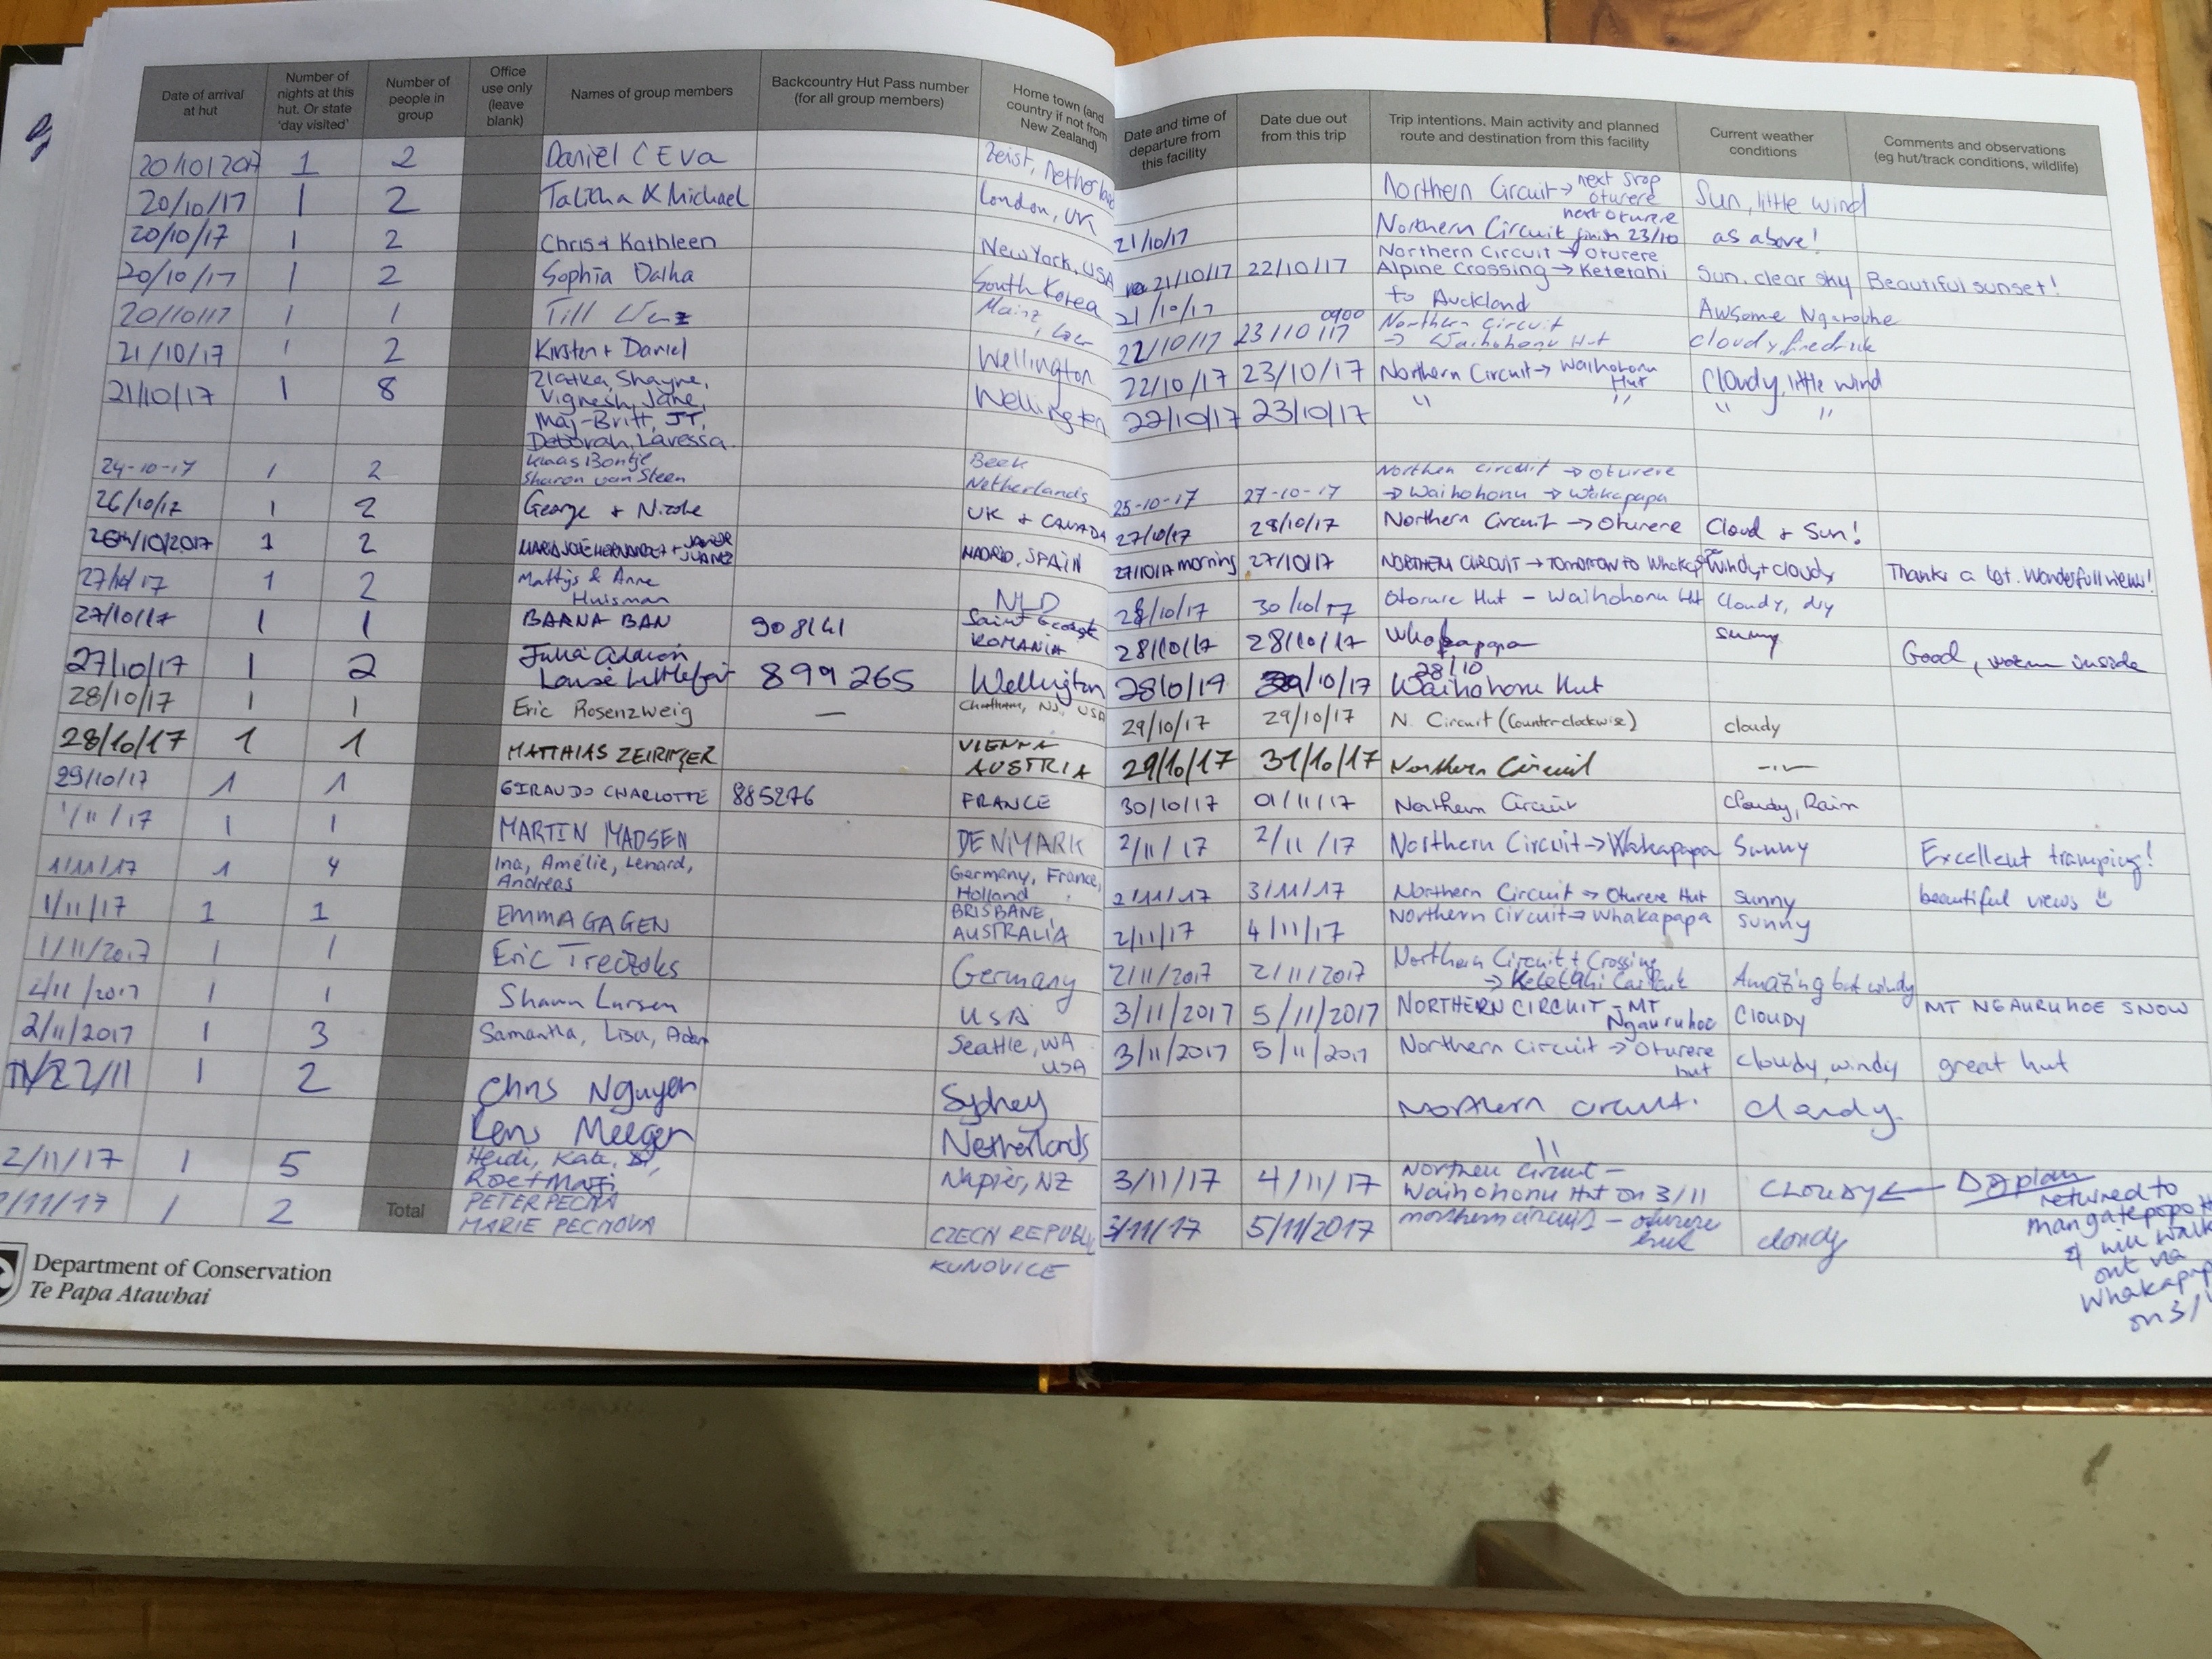 Date of arrival at hut
Number of nights at this hut. Or state 'day visited'
Number of people in group
Office use only (leave blank)
Names of group members
Backcountry Hut Pass number (for all group members)
Home town (and country if not from New Zealand)
Date and time of departure from this facility
Date due out from this trip
Trip intentions. Main activity and planned route and destination from this facility
Current weather conditions
Comments and observations (eg hut/track conditions, wildlife)
20/10/2017 1 2 Daniel & Eva Zeist, Netherland Northern Circuit → next stop oturere Sun, little wind
20/10/17 1 2 Talitha & Michael London, UK 21/10/17 Northern Circuit next oturere finish 23/10 as above!
20/10/17 1 2 Chris + Kathleen New York, USA 21/10/17 22/10/17 Northern Circuit → Oturere Sun, clear sky Beautiful sunset!
20/10/17 1 2 Sophia Dalha South Korea 21/10/17 Alpine Crossing → Ketetahi to Auckland Awsome
20/10/17 1 1 Till Mainz, 22/10/17 23/10/17 0900 Northern Circuit → Waihohonu Hut cloudy
21/10/17 1 2 Kirsten + Daniel Wellington 22/10/17 23/10/17 Northern Circuit → Waihohonu Hut Cloudy, little wind
21/10/17 1 8 Zlatka, Shayne, Wellington 22/10/17 23/10/17 " " " "
Vignesh, Jane,
Maj-Britt, JT,
Deborah, Laressa.
24-10-17 1 2 Klaas Bontje Beek 25-10-17 27-10-17 Northen circuit → oturere
Sharon van Steen Netherlands → Waihohonu → Wakapapa
26/10/17 1 2 George + Nicole UK + CANADA 27/10/17 28/10/17 Northern Circuit → Oturere Cloud + Sun!
26th/10/2017 1 2 MARIA JOSÉ HERNANDEZ + JAVIER JUANEZ MADRID, SPAIN 27/10/17 morning 27/10/17 NORTHERN CIRCUIT → TOMORROW TO Windy + cloudy Thanks a lot. Wonderfull views!
27/10/17 1 2 Mattijs & Anne Huisman NLD 28/10/17 30/10/17 Oturure Hut – Waihohonu Hut Cloudy, dry
27/10/17 1 1 BARNA BAN 908141 Saint George ROMANIA 28/10/17 28/10/17 Whakapapa sunny Good, warm inside
27/10/17 1 2 Julia 899265 Wellington 28/10/17 /10/17 28/10 Waihohonu Hut
Louise
28/10/17 1 1 Eric Rosenzweig — Chatham, NJ, USA 29/10/17 29/10/17 N. Circuit (Counterclockwise) cloudy
28/10/17 1 1 MATTHIAS ZEIRINGER VIENNA AUSTRIA 29/10/17 31/10/17 Northern Circuit —"—
29/10/17 1 1 GIRAUDO CHARLOTTE 885276 FRANCE 30/10/17 01/11/17 Northern Circuit Cloudy, Rain
1/11/17 1 1 MARTIN MADSEN DENMARK 2/11/17 2/11/17 Northern Circuit → Wakapapa Sunny Excellent tramping!
1/11/17 1 4 Ina, Amélie, Lenard, Andreas Germany, France, Holland 2/11/17 3/11/17 Northern Circuit → Oturere Hut sunny beautiful views ☺
1/11/17 1 1 EMMA GAGEN BRISBANE, AUSTRALIA 2/11/17 4/11/17 Northern Circuit → Whakapapa sunny
1/11/2017 1 1 Eric Germany 2/11/2017 2/11/2017 Northern Circuit + Crossing → Ketetahi Carpark Amazing but windy
2/11/2017 1 1 Shawn Larsen USA 3/11/2017 5/11/2017 NORTHERN CIRCUIT – MT Ngauruhoe CLOUDY MT NGAURUHOE SNOW
2/11/2017 1 3 Samantha, Lisa, Adam Seattle, WA USA 3/11/2017 5/11/2017 Northern Circuit → Oturere hut cloudy, windy great hut
2/11 1 2 Chris Nguyen Sydney Northern circuit. Cloudy.
Rens Meeger Netherlands "
2/11/17 1 5 Heidi, Kate, Napier, NZ 3/11/17 4/11/17 Northern Circuit – Waihohonu Hut on 3/11 CLOUDY ←
returned to
mangatepopo
& will walk
out via
Whakapapa
on 3/
2/11/17 1 2 PETER PECHA CZECH REPUBLIC 3/11/17 5/11/2017 northern circuit – oturere hut cloudy
MARIE PECHOVA KUNOVICE
Total
Department of Conservation
Te Papa Atawhai